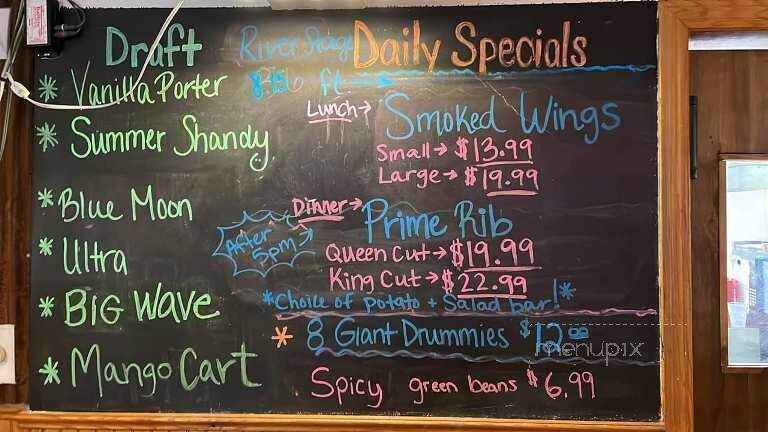 Draft
* Vanilla Porter
* Summer Shandy
* Blue Moon
* Ultra
* BIG WAVE
* Mango Cart
River Stage
ft
Daily Specials
Lunch→ Smoked Wings
Small→ $13.99
Large→ $19.99
Dinner→ Prime Rib
After 5pm→
Queen Cut→ $19.99
King Cut→ $22.99
*Choice of potato + Salad bar!*
* 8 Giant Drummies $12.00
Spicy green beans $6.99
menupix